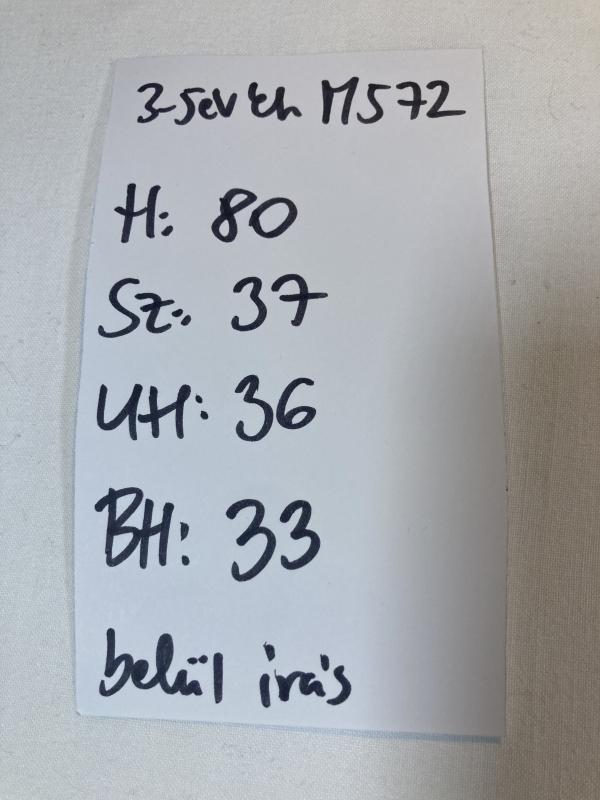 3-5ev Eh M572
H: 80
Sz: 37
UH: 36
BH: 33
belül írás